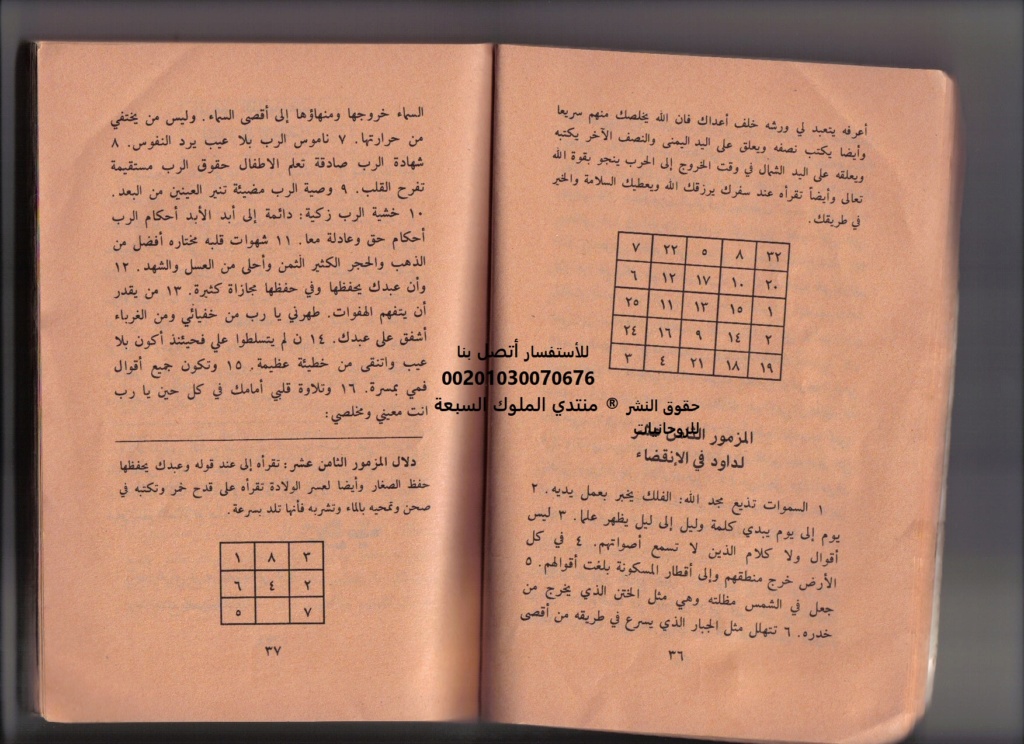 أعرفه يتعبد لي ورشه خلف أعداك فان الله يخلصك منهم سريعا
وأيضا يكتب نصفه ويعلق على اليد اليمنى والنصف الآخر يكتبه
ويعلقه على اليد الشمال في وقت الخروج إلى الحرب ينجو بقوة الله
تعالى وأيضاً تقرأه عند سفرك يرزقك الله ويعطيك السلامة والخبر
في طريقك.
٧ ٢٢ ٥ ٨ ٣٢
٦ ١٢ ١٧ ١٠ ٢٠
٢٥ ١١ ١٣ ١٥ ١
٢٤ ١٦ ٩ ١٤ ٢
٣ ٤ ٢١ ١٨ ١٩
المزمور الثامن عشر
لداود في الإنقضاء
١ السموات تذيع مجد الله: الفلك يخبر بعمل يديه. ٢
يوم إلى يوم يبدي كلمة وليل إلى ليل يظهر علما. ٣ ليس
أقوال ولا كلام الذين لا تسمع أصواتهم. ٤ في كل
الأرض خرج منطقهم وإلى أقطار المسكونة بلغت أقوالهم. ٥
جعل في الشمس مظلته وهي مثل الختن الذي يخرج من
خدره. ٦ تتهلل مثل الجبار الذي يسرع في طريقه من أقصى
٣٦
السماء خروجها ومنهاؤها إلى أقصى السماء. وليس من يختفي
من حرارتها. ٧ ناموس الرب بلا عيب يرد النفوس. ٨
شهادة الرب صادقة تعلم الاطفال حقوق الرب مستقيمة
تفرح القلب. ٩ وصية الرب مضيئة تنير العينين من البعد.
١٠ خشية الرب زكية: دائمة إلى أبد الأبد أحكام الرب
أحكام حق وعادلة معا. ١١ شهوات قلبه مختاره أفضل من
الذهب والحجر الكثير الثمن وأحلى من العسل والشهد. ١٢
وأن عبدك يحفظها وفي حفظها مجازاة كثيرة. ١٣ من يقدر
أن يتفهم الهفوات. طهرني يا رب من خفيائي ومن الغرباء
أشفق على عبدك. ١٤ ن لم يتسلطوا علي فحيئنذ أكون بلا
عيب واتنقى من خطيئة عظيمة. ١٥ وتكون جميع أقوال
فمي بمسرة. ١٦ وتلاوة قلبي أمامك في كل حين يا رب
انت معيني ومخلصي:
دلال المزمور الثامن عشر: تقرأه إلى عند قوله وعبدك يحفظها
حفظ الصغار وأيضا لعسر الولادة تقرأه على قدح خمر وتكتبه في
صحن وتمحيه بالماء وتشربه فأنها تلد بسرعة.
١ ٨ ٣
٦ ٤ ٢
٥ ٧
٣٧
للأستفسار أتصل بنا
00201030070676
حقوق النشر ® منتدي الملوك السبعة
للروحانيات